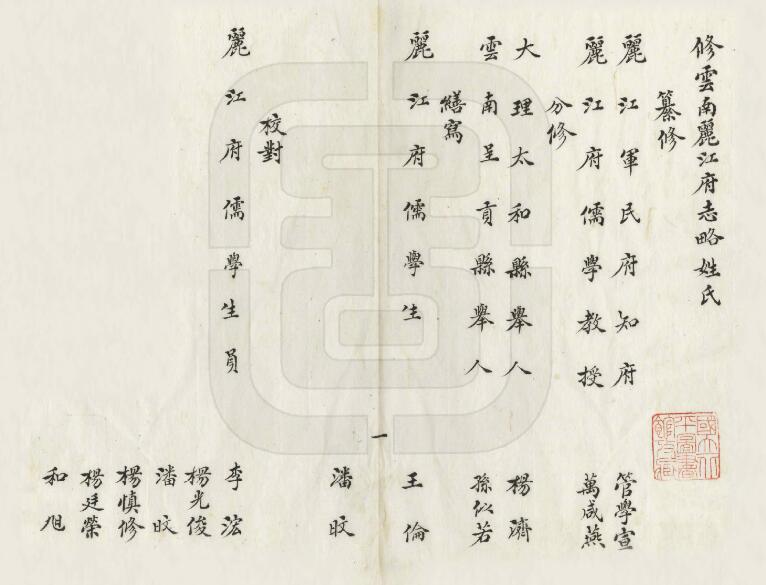 修雲南麗江府志略姓氏
纂修
麗江軍民府知府 管學宣
麗江府儒學教授 萬咸燕
分修
大理太和縣舉人 楊濟
雲南呈貢縣舉人 孫似若
繕寫
麗江府儒學生 王倫
潘旼
一
校對
麗江府儒學生員 李浤
楊光俊
潘旼
楊慎修
楊廷榮
和旭
國立北
平圖書
館收藏